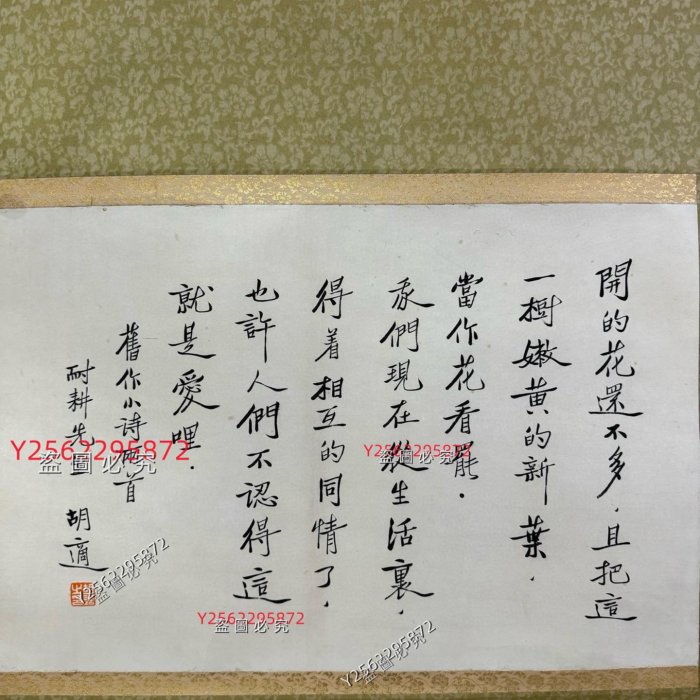 開的花還不多.且把這
一樹嫩黃的新葉.
當作花看罷.
我們現在從生活裏.
得着相互的同情了.
也許人們不認得這
就是愛哩.
舊作小詩 首
耐耕先生
胡適
Y2562295872
盜圖必究
Y2562295872
盜圖必究
Y2562295872
盜圖必究
Y2562295872
盜圖必究
Y2562295872
盜圖必究